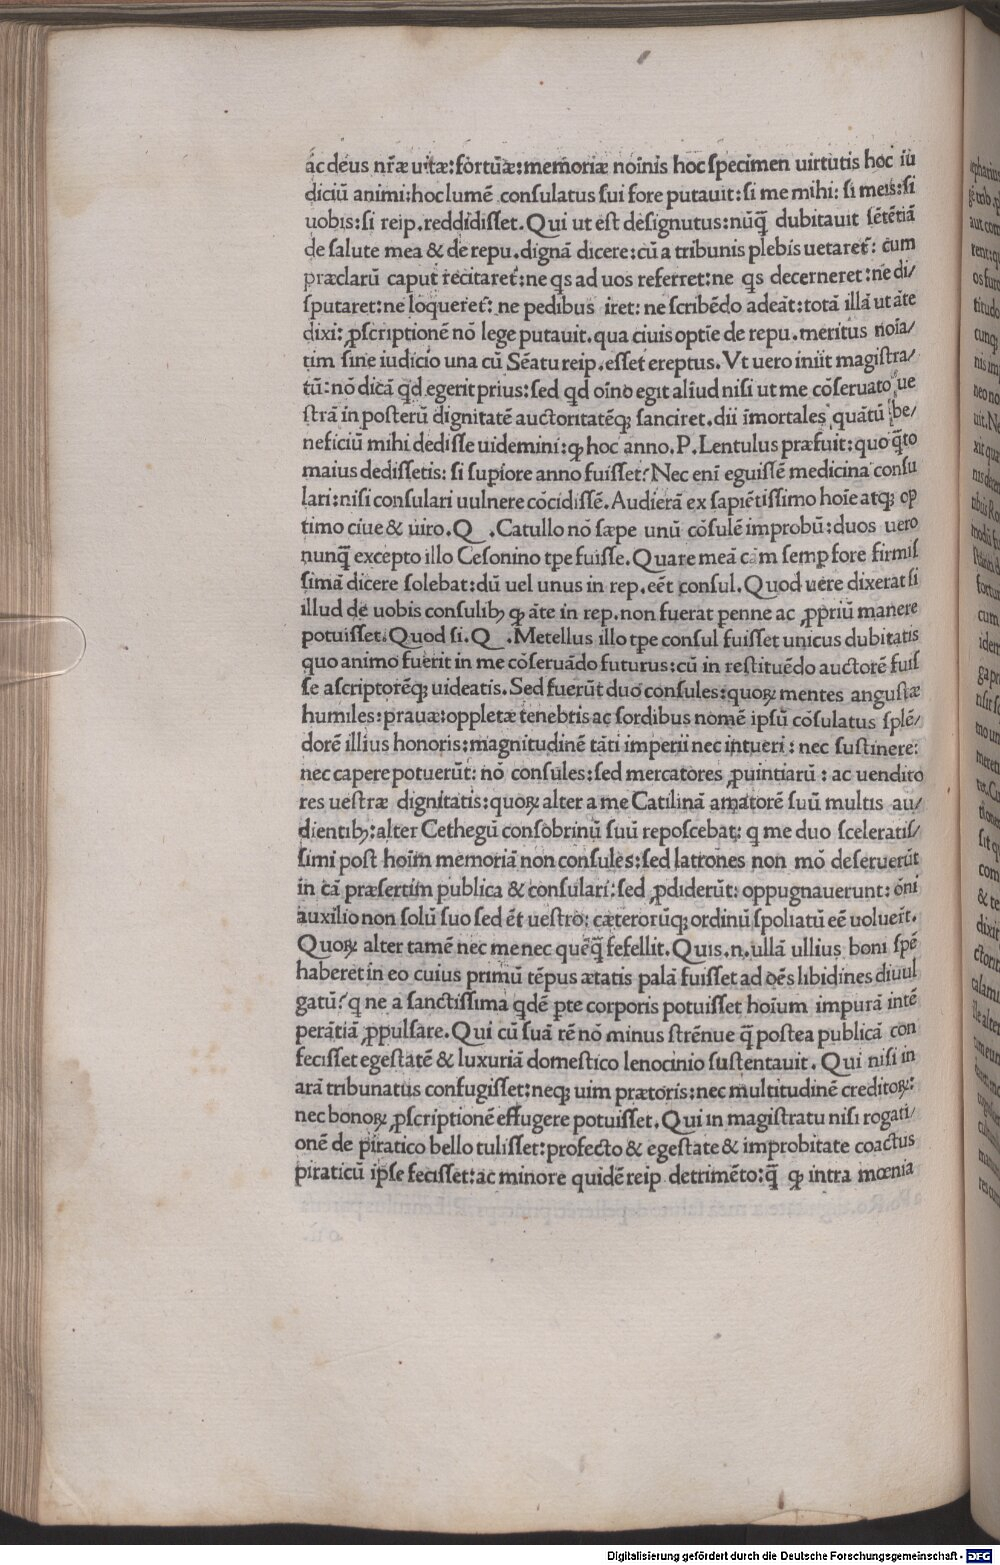 ac deus nr̄æ uitæ:fortūæ:memoriæ noīnis hoc specimen uirtutis hoc iu
diciū animi:hoc lumē consulatus sui fore putauit:si me mihi: si meis:si
uobis:si reip.reddidisset.Qui ut est designutus:nūq̄ dubitauit sētētiā
de salute mea & de repu.dignā dicere:cū a tribunis plebis uetaret̄: cum
præclarū caput recitaret̄:ne qs ad uos referret:ne qs decerneret:ne di/
sputaret:ne loqueret̄: ne pedibus iret: ne scribēdo adeāt:totā illā ut āte
dixi: ꝓscriptionē nō lege putauit.qua ciuis optīe de repu.meritus noīa/
tim sine iudicio una cū Sēatu reip.esset ereptus.Vt uero iniit magistra/
tū:nō dicā qd egerit prius:sed qd oīno egit aliud nisi ut me cōseruato ue
strā in posterū dignitatē auctoritatēq; sanciret.dii īmortales quātū be/
neficiū mihi dedisse uidemini:ꝙ hoc anno.P.Lentulus præfuit:quo q̄to
maius dedissetis: si supiore anno fuisset? Nec eni eguissē medicina consu
lari:nisi consulari uulnere cōcidissē.Audierā ex sapiētissimo hoīe atq; op
timo ciue & uiro.Q .Catullo nō sæpe unū cōsulē improbū:duos uero
nunq̄ excepto illo Cesonino tpe fuisse.Quare meā cām semp fore firmis
simā dicere solebat:dū uel unus in rep.eēt consul.Quod uere dixerat si
illud de uobis consulibꝫ ꝙ āte in rep.non fuerat penne ac ꝓpriū manere
potuisset.Quod si.Q .Metellus illo tpe consul fuisset unicus dubitatis
quo animo fuerit in me cōseruādo futurus:cū in restituēdo auctorē fuis
se ascriptorēq; uideatis.Sed fuerūt duo consules:quoꝝ mentes angustæ
humiles:prauæ:oppletæ tenebris ac sordibus nomē ipsū cōsulatus splē/
dorē illius honoris:magnitudinē tāti imperii nec intueri: nec sustinere:
nec capere potuerūt: nō consules:sed mercatores ꝓuintiarū: ac uendito
res uestræ dignitatis:quoꝝ alter a me Catilinā amatorē suū multis au/
dientibꝫ:alter Cethegū consobrinū suū reposcebat: q me duo sceleratis/
simi post hoīm memoriā non consules:sed latrones non mō deseruerūt
in cā præsertim publica & consulari: sed ꝓdiderūt: oppugnauerunt: ōni
auxilio non solū suo sed ēt uestro: cæterorūq; ordinū spoliatū eē uolueīt.
Quoꝝ alter tamē nec me nec quēq̄ fefellit.Quis.n.ullā ullius boni spē
haberet in eo cuius primū tēpus ætatis palā fuisset ad oēs libidines diuul
gatū?q ne a sanctissima qdē pte corporis potuisset hoīum impurā intē
perātiā ꝓpulsare.Qui cū suā rē nō minus strēnue q̄ postea publicā con
fecisset egestatē & luxuriā domestico lenocinio sustentauit. Qui nisi in
arā tribunatus confugisset:neq; uim prætoris:nec multitudinē creditoꝝ:
nec bonoꝝ ꝓscriptionē effugere potuisset.Qui in magistratu nisi rogati/
onē de piratico bello tulisset:profecto & egestate & improbitate coactus
piraticū ipse fecisset:ac minore quidē reip detrimēto:q̄ ꝙ intra mœnia
Digitalisierung gefördert durch die Deutsche Forschungsgemeinschaft - DFG